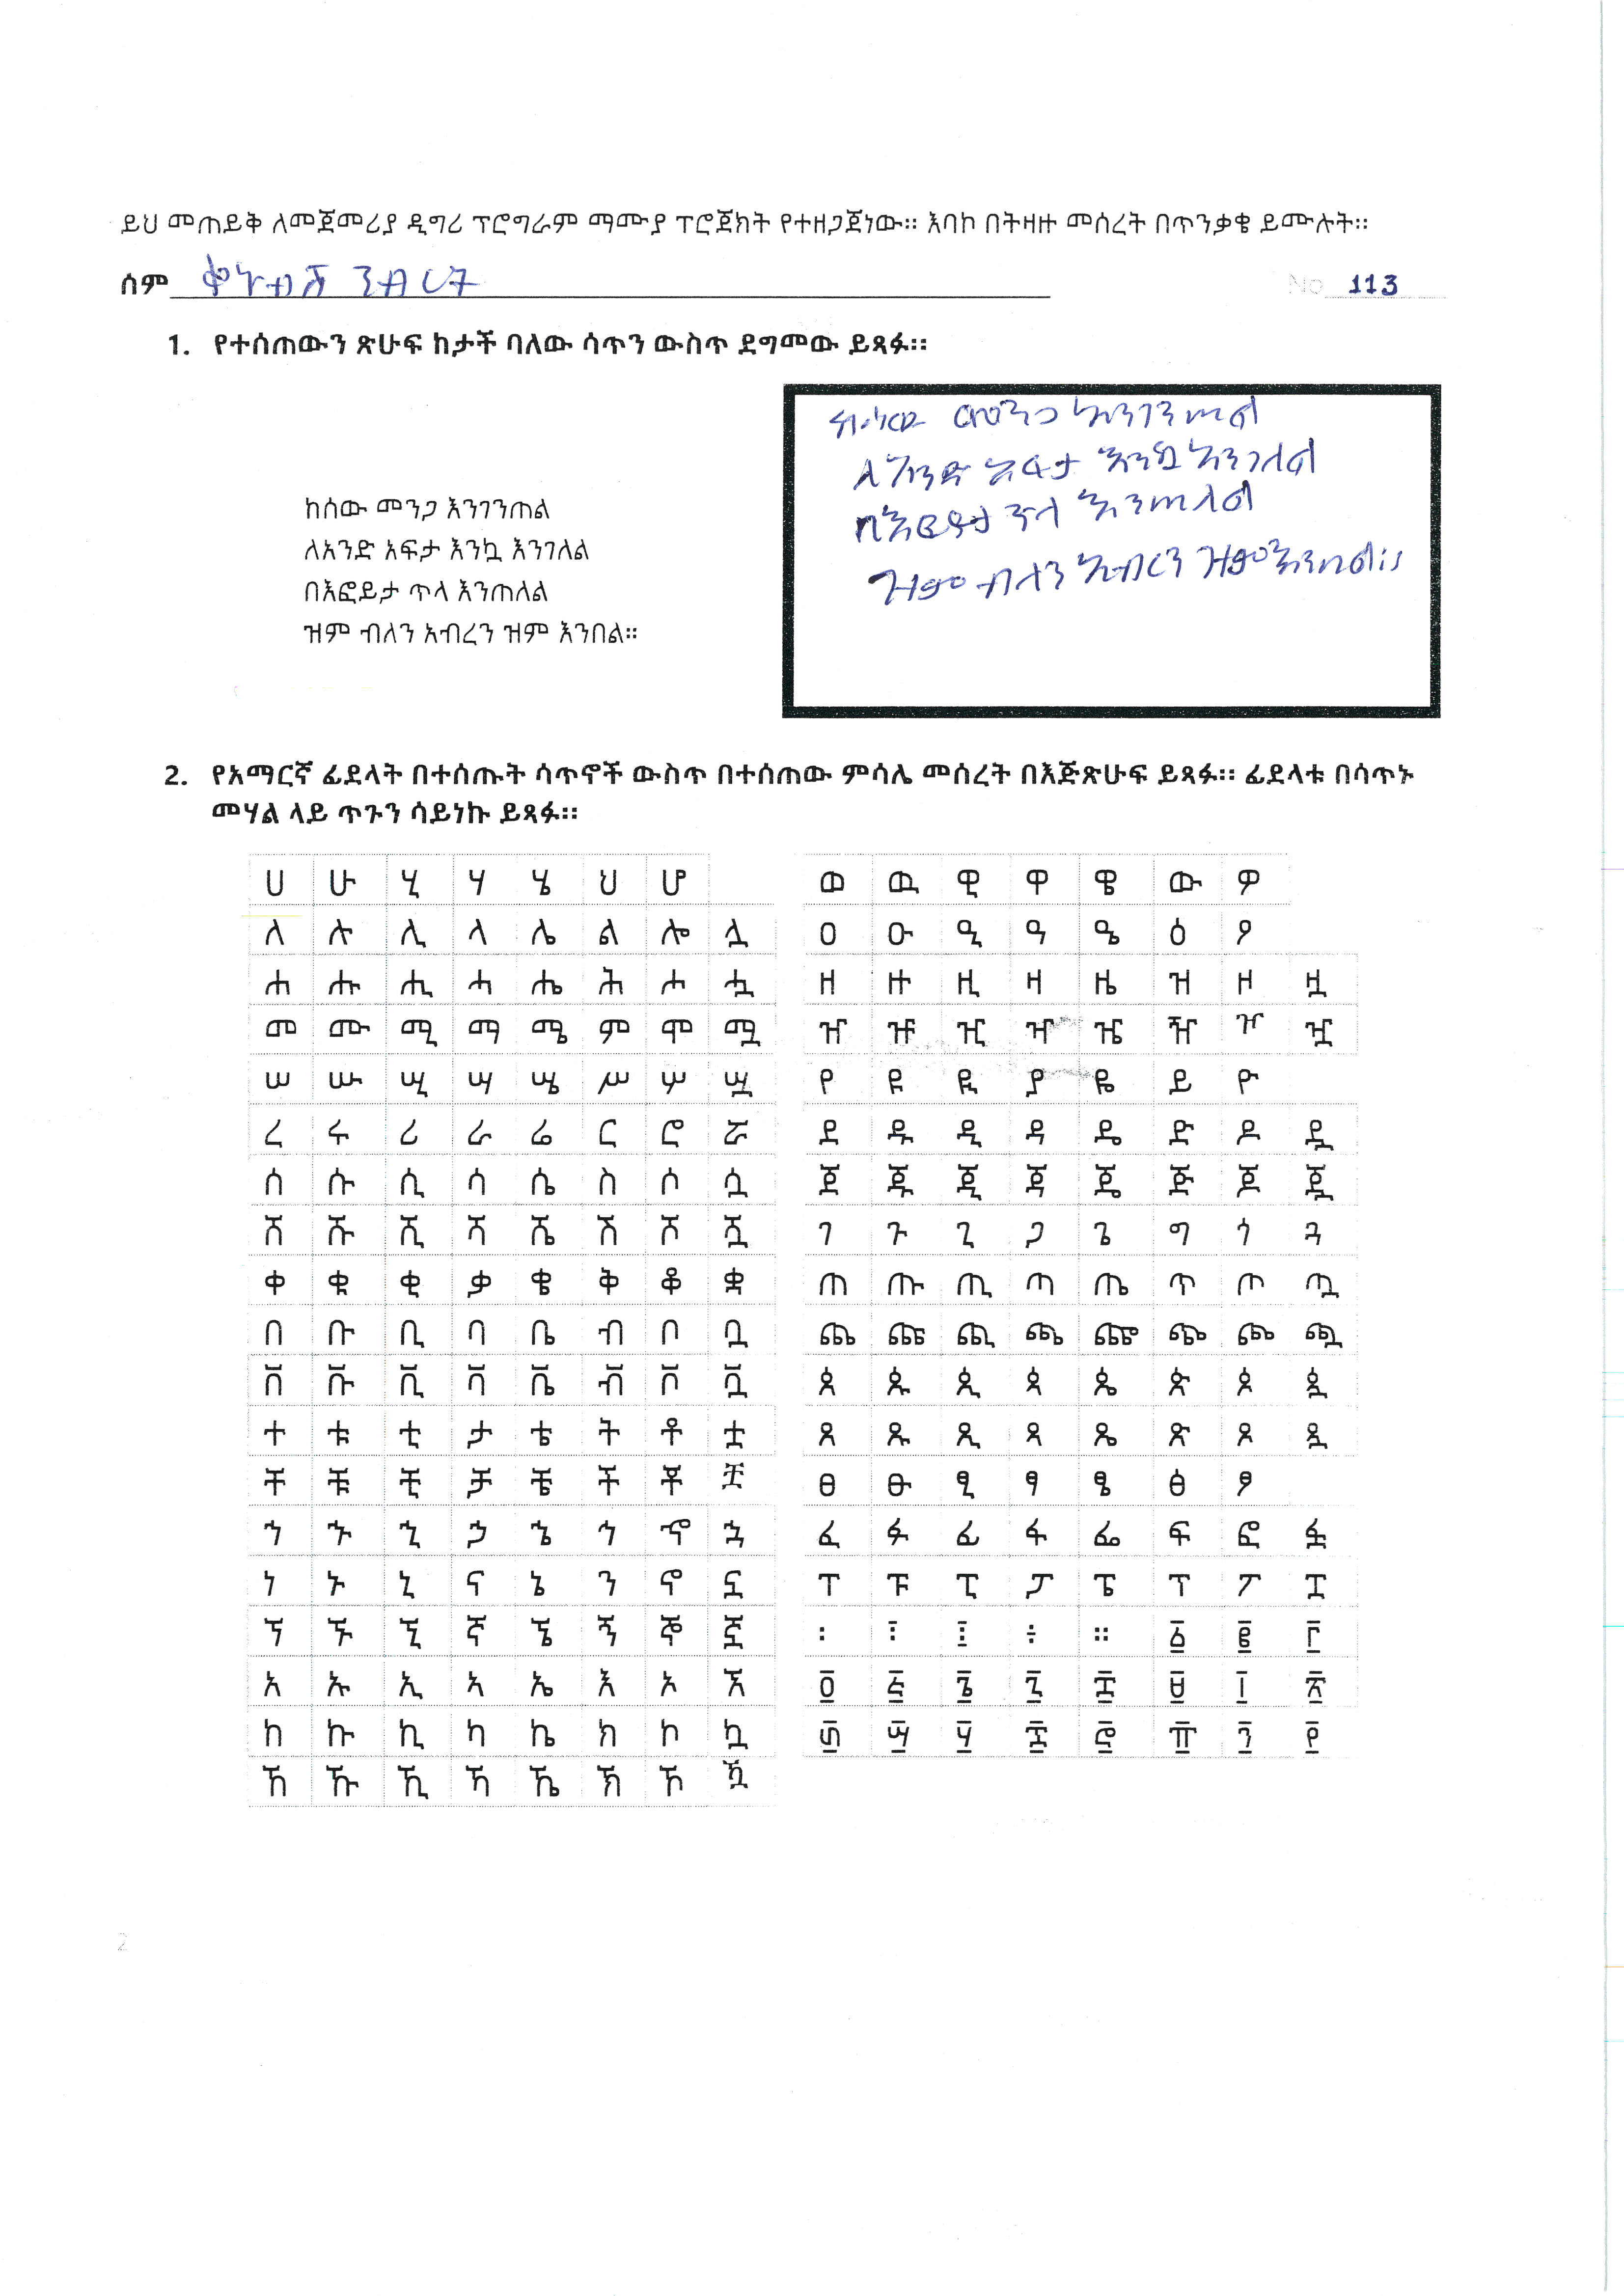 ይህ መጠይቅ ለመጀመሪያ ዲግሪ ፕሮግራም ማሙያ ፕሮጀክት የተዘጋጀነው። እባኮ በትዛዙ መሰረት በጥንቃቄ ይሙሉት።
ስም No 113
1. የተሰጠውን ጽሁፍ ከታች ባለው ሳጥን ውስጥ ደግመው ይጻፉ።
ከሰው መንጋ እንገንጠል
ለአንድ አፍታ እንኳ እንገለል
በእፎይታ ጥላ እንጠለል
ዝም ብለን አብረን ዝም እንበል።
ከሰው መንጋ እንገንጠል
ለአንድ አፍታ እንኳ እንገለል
በእፎይታ ጥላ እንጠለል
ዝም ብለን አብረን ዝም እንበል።
2. የአማርኛ ፊደላት በተሰጡት ሳጥኖች ውስጥ በተሰጠው ምሳሌ መሰረት በእጅጽሁፍ ይጻፉ። ፊደላቱ በሳጥኑ
መሃል ላይ ጥጉን ሳይነኩ ይጻፉ።
ሀ ሁ ሂ ሃ ሄ ህ ሆ
ለ ሉ ሊ ላ ሌ ል ሎ ሏ
ሐ ሑ ሒ ሓ ሔ ሕ ሖ ሗ
መ ሙ ሚ ማ ሜ ም ሞ ሟ
ሠ ሡ ሢ ሣ ሤ ሥ ሦ ሧ
ረ ሩ ሪ ራ ሬ ር ሮ ሯ
ሰ ሱ ሲ ሳ ሴ ስ ሶ ሷ
ሸ ሹ ሺ ሻ ሼ ሽ ሾ ሿ
ቀ ቁ ቂ ቃ ቄ ቅ ቆ ቋ
በ ቡ ቢ ባ ቤ ብ ቦ ቧ
ቨ ቩ ቪ ቫ ቬ ቭ ቮ ቯ
ተ ቱ ቲ ታ ቴ ት ቶ ቷ
ቸ ቹ ቺ ቻ ቼ ች ቾ ቿ
ኀ ኁ ኂ ኃ ኄ ኅ ኆ ኋ
ነ ኑ ኒ ና ኔ ን ኖ ኗ
ኘ ኙ ኚ ኛ ኜ ኝ ኞ ኟ
አ ኡ ኢ ኣ ኤ እ ኦ ኧ
ከ ኩ ኪ ካ ኬ ክ ኮ ኳ
ኸ ኹ ኺ ኻ ኼ ኽ ኾ ዃ
ወ ዉ ዊ ዋ ዌ ው ዎ
ዐ ዑ ዒ ዓ ዔ ዕ ዖ
ዘ ዙ ዚ ዛ ዜ ዝ ዞ ዟ
ዠ ዡ ዢ ዣ ዤ ዥ ዦ ዧ
የ ዩ ዪ ያ ዬ ይ ዮ
ደ ዱ ዲ ዳ ዴ ድ ዶ ዷ
ጀ ጁ ጂ ጃ ጄ ጅ ጆ ጇ
ገ ጉ ጊ ጋ ጌ ግ ጎ ጓ
ጠ ጡ ጢ ጣ ጤ ጥ ጦ ጧ
ጨ ጩ ጪ ጫ ጬ ጭ ጮ ጯ
ጰ ጱ ጲ ጳ ጴ ጵ ጶ ጷ
ጸ ጹ ጺ ጻ ጼ ጽ ጾ ጿ
ፀ ፁ ፂ ፃ ፄ ፅ ፆ
ፈ ፉ ፊ ፋ ፌ ፍ ፎ ፏ
ፐ ፑ ፒ ፓ ፔ ፕ ፖ ፗ
፡ ፣ ፤ ÷ ። ፩ ፪ ፫
፬ ፭ ፮ ፯ ፰ ፱ ፲ ፳
፴ ፵ ፶ ፷ ፸ ፹ ፺ ፻
2